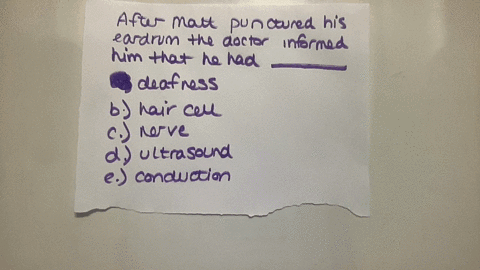 After Matt punctured his
eardrum the doctor informed
him that he had ________
deafness
b.) hair cell
c.) nerve
d.) ultrasound
e.) conduction